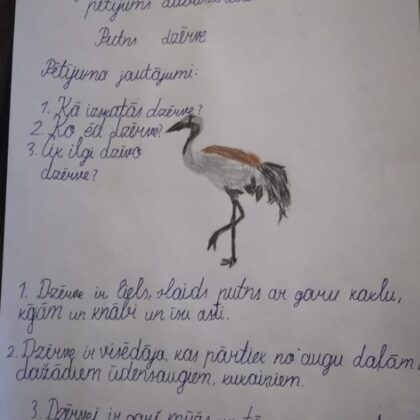 pētījums
Putns dzērve
Pētījuma jautājumi:
1. Kā izskatās dzērve?
2. Ko ēd dzērve?
3. Cik ilgi dzīvo
dzērve?
1. Dzērve ir liels, slaids putns ar garu kaklu,
kājām un knābi un īsu asti.
2. Dzērve ir visēdāja, kas pārtiek no augu daļām,
dažādiem ūdensaugiem, kukaiņiem.
3. Dzērvei ir garš mūžs